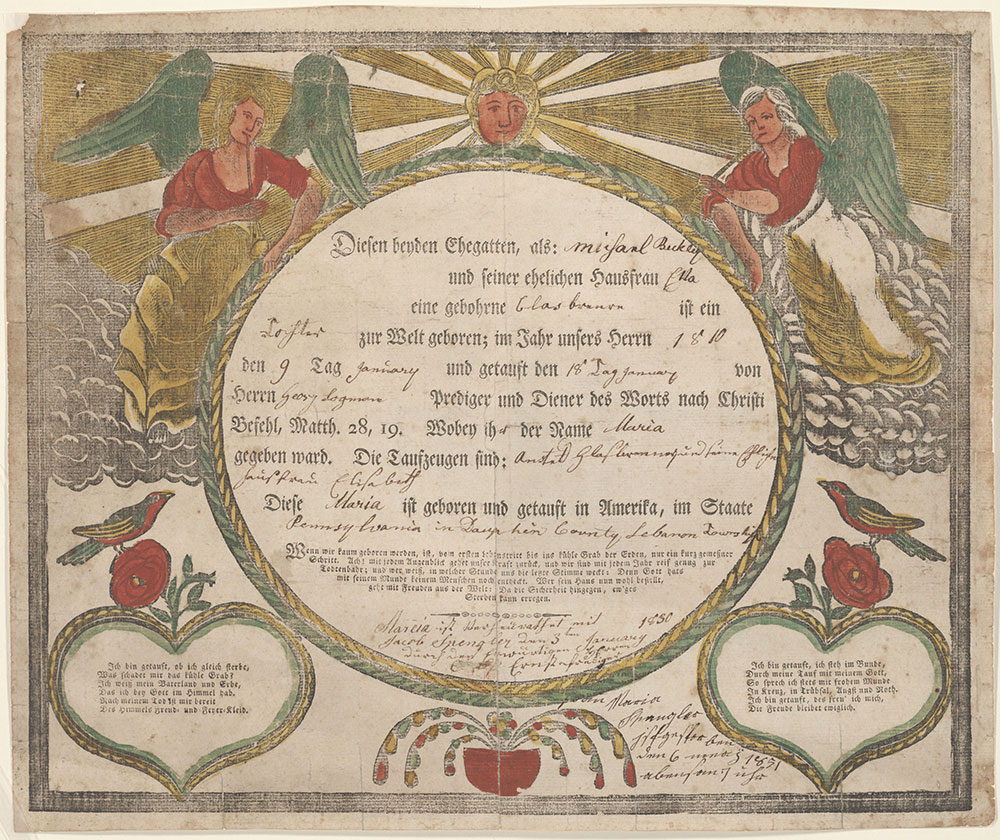 Diesen beyden Ehegatten, als: Michael Beckley
und seiner ehelichen Hausfrau Etta
eine gebohrne Clasbrenre ist ein
Tochter zur Welt geboren; im Jahr unsers Herrn 1810
den 9 Tag January und getauft den 18 Tag January von
Herrn Georg Logman Prediger und Diener des Worts nach Christi
Befehl, Matth. 28, 19. Wobey ihr der Name Maria
gegeben ward. Die Taufzeugen sind: und seine Ehliche
Hausfrau Elisabeth
Diese Maria ist geboren und getauft in Amerika, im Staate
Pennsylvania in Dauphin County Lebanon Township
Wenn wir kaum geboren werden, ist, vom ersten Lebenstritt bis ins kühle Grab der Erden, nur ein kurz gemeßner
Schritt. Ach! mit jedem Augenblick gehet unser Kraft zurück, und wir sind mit jedem Jahr reif genug zur
Todtenbahr; und wer weiß, in welcher Stunde uns die letzte Stimme weckt: Denn Gott hats
mit seinem Munde keinem Menschen noch entdeckt. Wer sein Haus nun wohl bestellt,
geht mit Freuden aus der Welt: Da die Sicherheit hingegen, ew'ges
Sterben kann erregen.
Marcia ist Verheirathet mit 1830
Jacob Spengler den 3ten January
durch den Ehrwürdigen Herrn
Ernst
Ich bin getauft, ob ich gleich sterbe,
Was schadet mir das kühle Grab?
Ich weiß mein Vaterland und Erbe,
Das ich bey Gott im Himmel hab.
Nach meinem Tod ist mir bereit
Des Himmels Freud- und Feyer-Kleid.
Ich bin getauft, ich steh im Bunde,
Durch meine Tauf mit meinem Gott,
So sprech ich stets mit frohem Munde
In Kreuz, in Trübsal, Angst und Noth.
Ich bin getauft, des freu' ich mich,
Die Freude bleibet ewiglich.
Maria
Spengler
ist gestorben
den 6
abens um 7 uhr